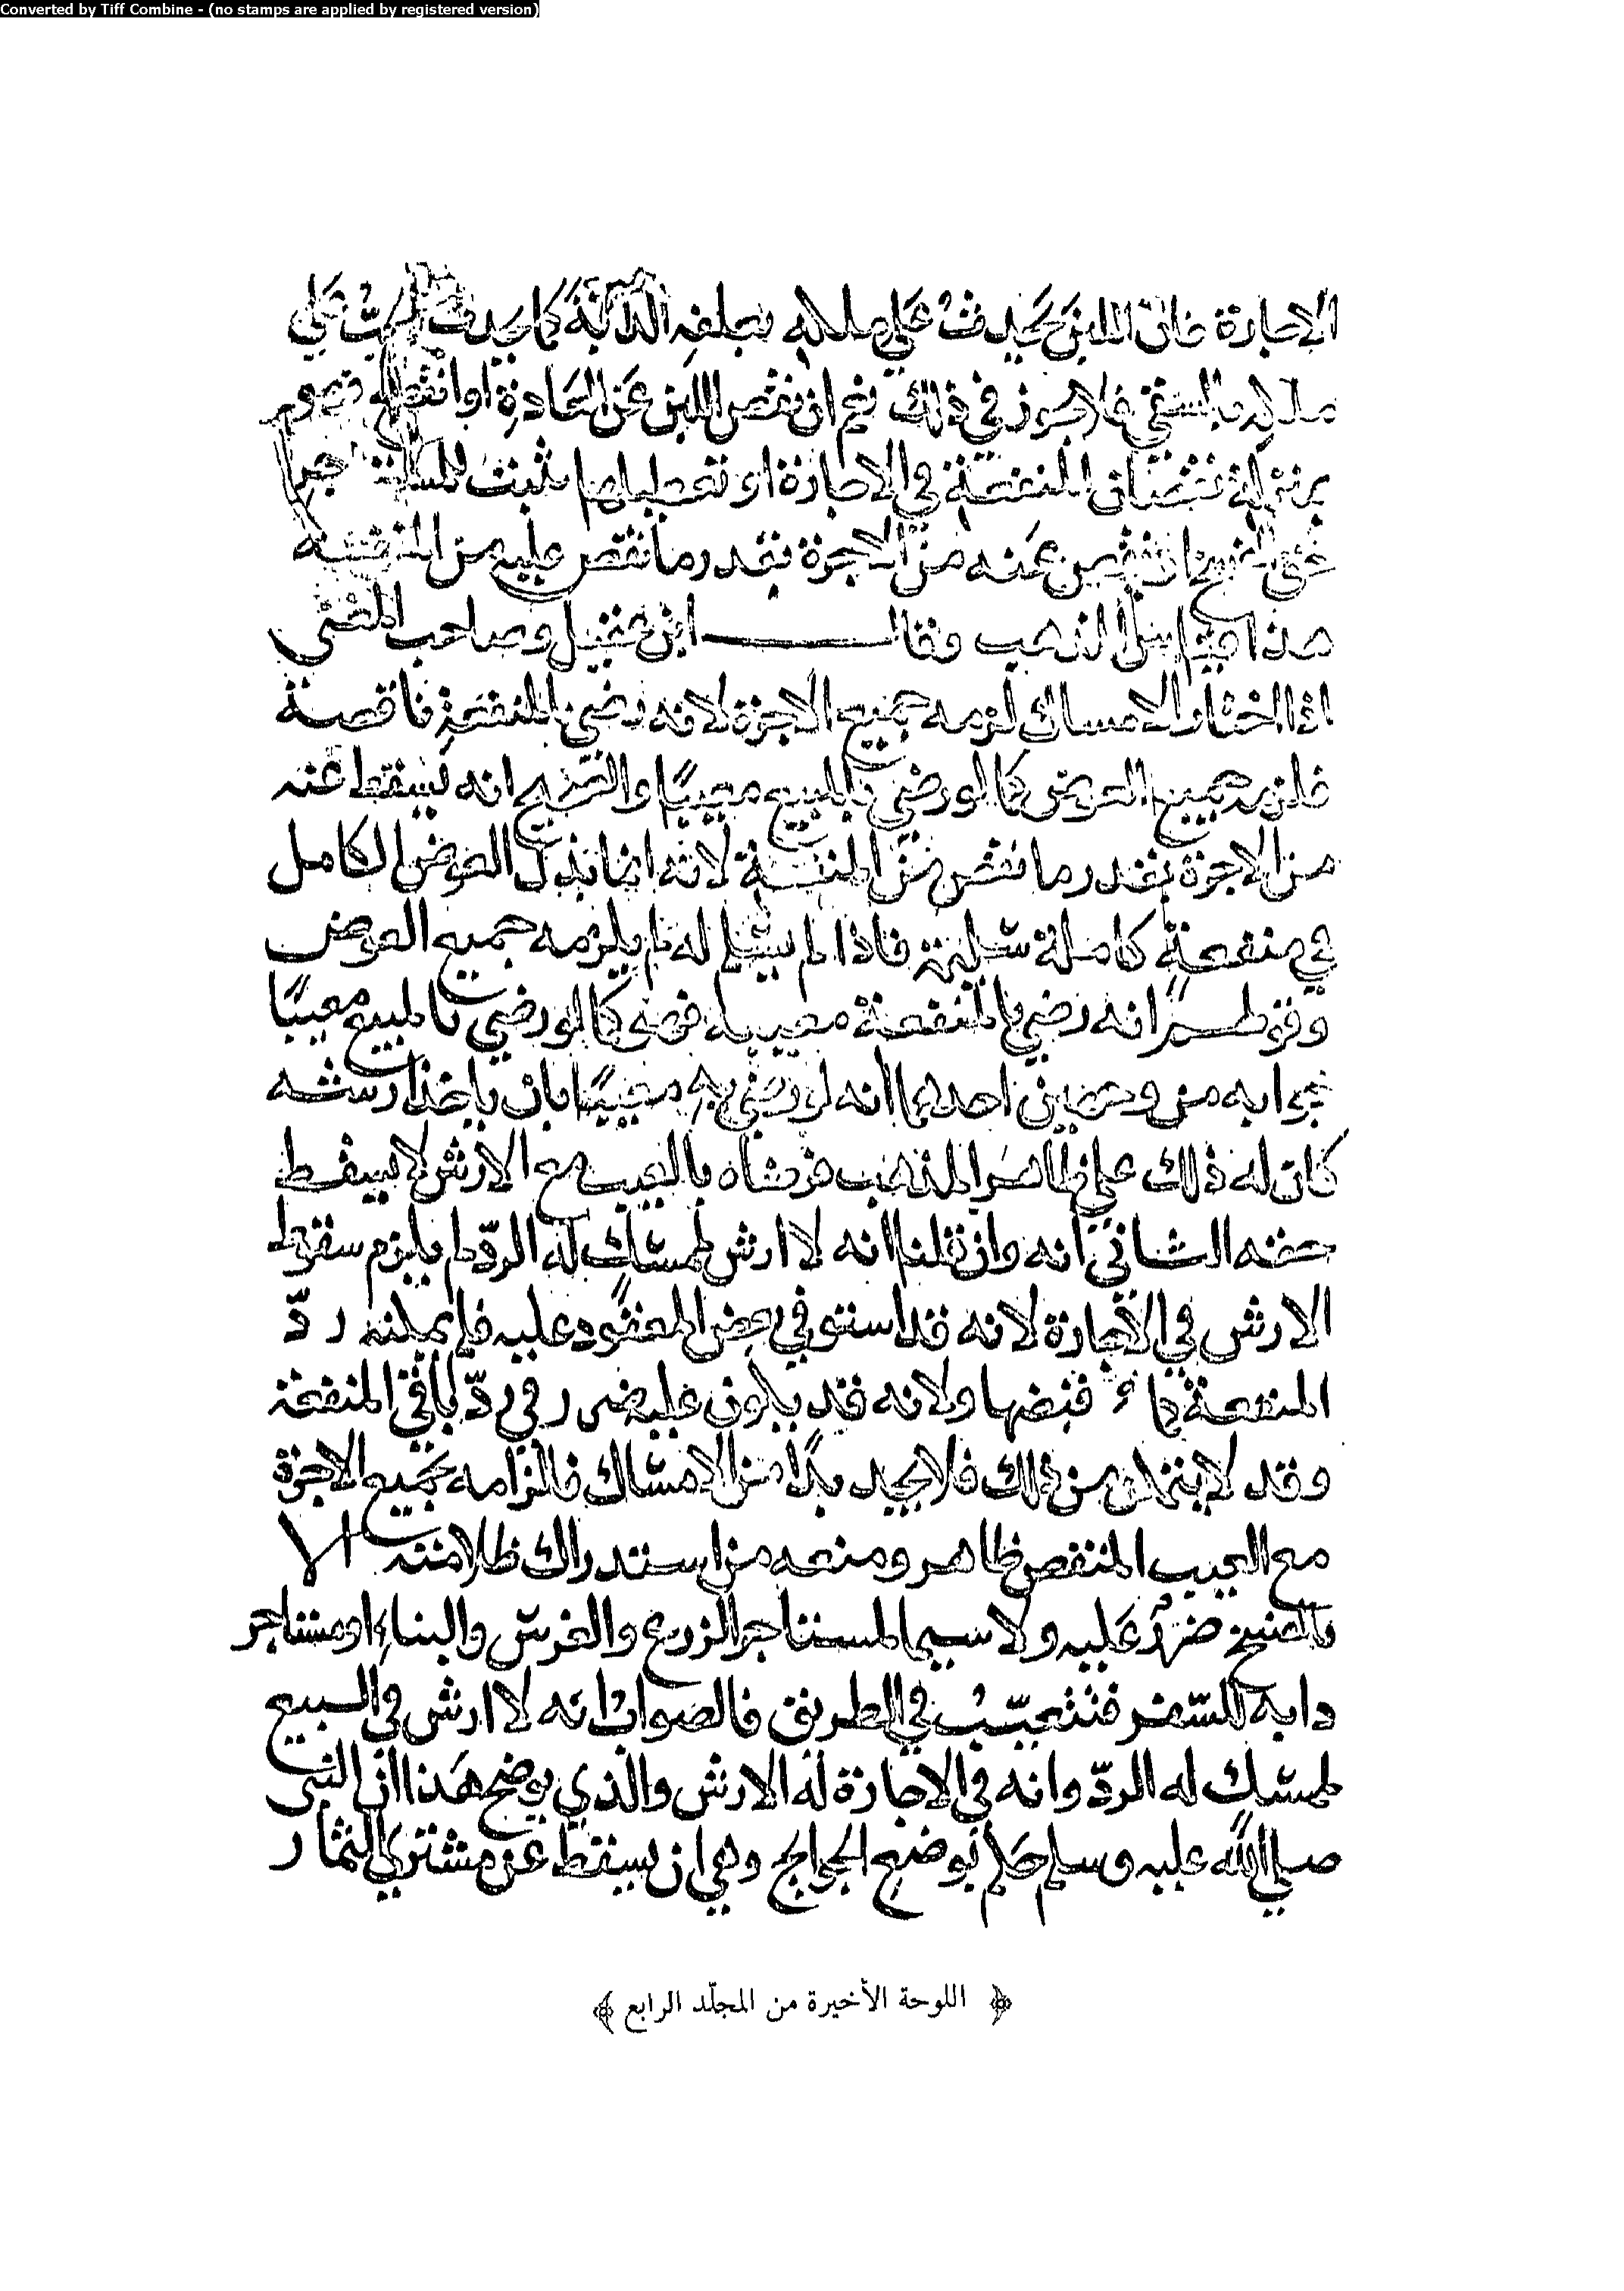 Converted by Tiff Combine - (no stamps are applied by registered version)
الاجارة فان اللبن يحدث علي ملكه بعلفه الدابة كما يحدث الحب علي
ملكه بالسقي فلا جوز في ذلك نعم ان نقص اللبن عن العادة او انقطع فهو
بمنزلة نقصان المنفعة في الاجارة او تعطيلها يثبت
الفسخ او ينقص عنه من الاجرة بقدر ما نقص عليه من المنفعة
هذا قياس المذهب وقال ابن عقيل وصاحب المغني
اذا اختار الامساك لزمه جميع الاجرة لانه رضي بالمنفعة ناقصة
فلزمه جميع العوض كما لو رضي بالمبيع معيبًا والصحيح انه يسقط عنه
من الاجرة بقدر ما نقص من المنفعة لانه انما بذل العوض الكامل
في منفعة كاملة سليمة فاذا لم يسلم له لم يلزمه جميع العوض
وقولهم انه رضي بالمنفعة معيبة فهو كما لو رضي بالمبيع معيبًا
جوابه من وجهين احدهما انه لو رضي به معيبًا بان ياخذ ارشه
كان له ذلك علي ظاهر المذهب فرضاه بالعيب مع الارش لا يسقط
حقه الثاني انه وان قلنا انه لا ارش لممسك له الردّ لم يلزم سقوط
الارش في الاجارة لانه قد استوفي بعض المعقود عليه فلم يمكنه ردّ
المنفعة كما قبضها ولانه قد يكون عليه ضرر في ردّ باقي المنفعة
وقد لا يتمكن من ذلك فلا يجد بدًا من الامساك فالزامه بجميع الاجرة
مع العيب المنقص ظاهر ومنعه من استدراك ظلامته الا
بالفسخ ضررٌ عليه ولا سيما لمستاجر الزرع والغرس والبناء او مستاجر
دابة للسّفر فتتعيّب في الطريق فالصواب انه لا ارش في المبيع
لممسك له الردّ وانه في الاجارة له الارش والذي يوضح هذا ان النبي
صلي الله عليه وسلم حكم بوضع الجوايح وهي ان يسقط عن مشتري الثمار
﴿ اللوحة الأخيرة من المجلّد الرابع ﴾